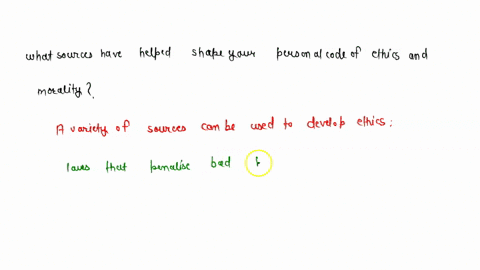 what sources have helped shape your personal code of ethics and
morality?.
A variety of sources can be used to develop ethics:
laws that penalise bad